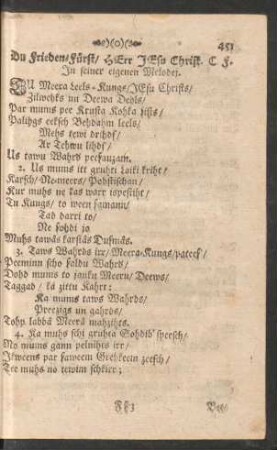 451
Du Frieden/Fürst/ HErr JEsu Christ. C F.
In seiner eigenen Melodey.
TU Meera Leels-Kungs/ JEsu Christs/
Zilweks un Deewa Deols/
Par mums pee Krusta Kohka sists/
Palihgs eeksch Behdahm leels/
Mehs tewi drihds/
Ar Tehwu lihds/
Us tawu Wahrds peesauzam.
2. Us mums itt gruhti Laiki kriht/
Karsch/ Ne-meers/ Pohstischan/
Kur muhs ne kas warr topestiht/
Tu Kungs/ to ween sgmann/
Tad darri to/
Ne sohdi jo
Muhs tawās karstās Dusmās.
3. Taws Wahrds irr/ Meera-Kungs/pateef/
Peeminn scho saldu Wahrds/
Dohd mums to jauku Meeru/ Deews/
Taggad/ kà zittu Kahrt:
Ka mums taws Wahrds/
Preezigs un gahrds/
Tohp labbā Meerā mahzihts.
4. Ka muhs schi gruhta Sohdib' spersch/
No mums gann pelnihts irr/
Jsweens par saweem Grehkeem zeesch/
Tee muhs no tewim schkirr;
Ff 3